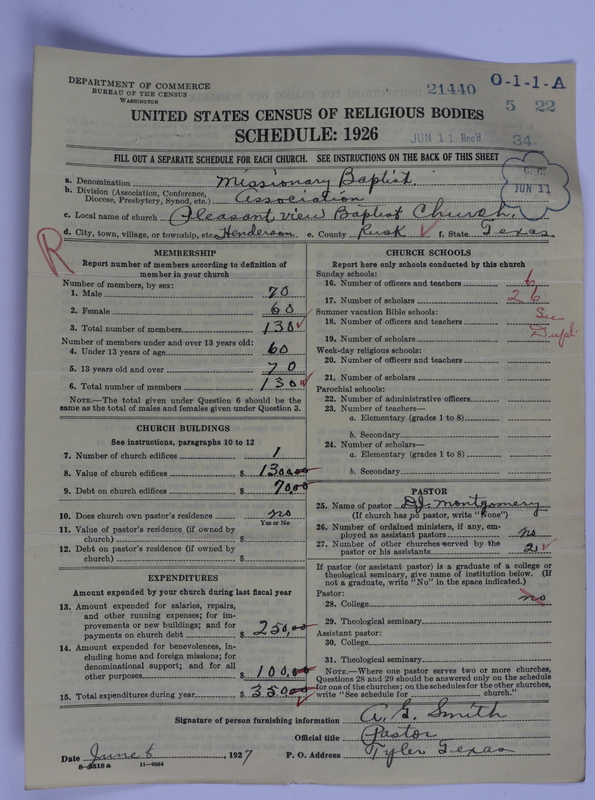 DEPARTMENT OF COMMERCE
BUREAU OF THE CENSUS
WASHINGTON
21440
O-1-1-A
5 22
34
UNITED STATES CENSUS OF RELIGIOUS BODIES
SCHEDULE: 1926
JUN 11 Rec'd
FILL OUT A SEPARATE SCHEDULE FOR EACH CHURCH. SEE INSTRUCTIONS ON THE BACK OF THIS SHEET
JUN 11
a. Denomination Missionary Baptist.
b. Division (Association, Conference, Diocese, Presbytery, Synod, etc.) Association
c. Local name of church Pleasant view Baptist Church.
d. City, town, village, or township, etc. Henderson e. County Rusk f. State Texas
R
MEMBERSHIP
Report number of members according to definition of
member in your church
Number of members, by sex:
1. Male 70
2. Female 60
3. Total number of members 130
Number of members under and over 13 years old:
4. Under 13 years of age 60
5. 13 years old and over 70
6. Total number of members 130
NOTE.—The total given under Question 6 should be the
same as the total of males and females given under Question 3.
CHURCH BUILDINGS
See instructions, paragraphs 10 to 12
7. Number of church edifices 1
8. Value of church edifices $ 1300.00
9. Debt on church edifices $ 70.00
10. Does church own pastor's residence? no
Yes or No
11. Value of pastor's residence (if owned by
church) $
12. Debt on pastor's residence (if owned by
church) $
EXPENDITURES
Amount expended by your church during last fiscal year
13. Amount expended for salaries, repairs,
and other running expenses; for im-
provements or new buildings; and for
payments on church debt $ 250.00
14. Amount expended for benevolences, in-
cluding home and foreign missions; for
denominational support; and for all
other purposes $ 100.00
15. Total expenditures during year $ 350.00
CHURCH SCHOOLS
Report here only schools conducted by this church
Sunday schools:
16. Number of officers and teachers 6
17. Number of scholars 26
Summer vacation Bible schools:
18. Number of officers and teachers
See
Dupl.
19. Number of scholars
Week-day religious schools:
20. Number of officers and teachers
21. Number of scholars
Parochial schools:
22. Number of administrative officers
23. Number of teachers—
a. Elementary (grades 1 to 8)
b. Secondary
24. Number of scholars—
a. Elementary (grades 1 to 8)
b. Secondary
PASTOR
25. Name of pastor D.J. Montgomery
(If church has no pastor, write "None")
26. Number of ordained ministers, if any, em-
ployed as assistant pastors no
27. Number of other churches served by the
pastor or his assistants 2
If pastor (or assistant pastor) is a graduate of a college or
theological seminary, give name of institution below. (If
not a graduate, write "No" in the space indicated.)
Pastor:
28. College no
29. Theological seminary
Assistant pastor:
30. College
31. Theological seminary
NOTE.—Where one pastor serves two or more churches,
Questions 28 and 29 should be answered only on the schedule
for one of the churches; on the schedules for the other churches,
write "See schedule for church."
Signature of person furnishing information A. G. Smith
Official title Pastor
Date June 8, 1927 P. O. Address Tyler Texas
8-2518a 11-9064